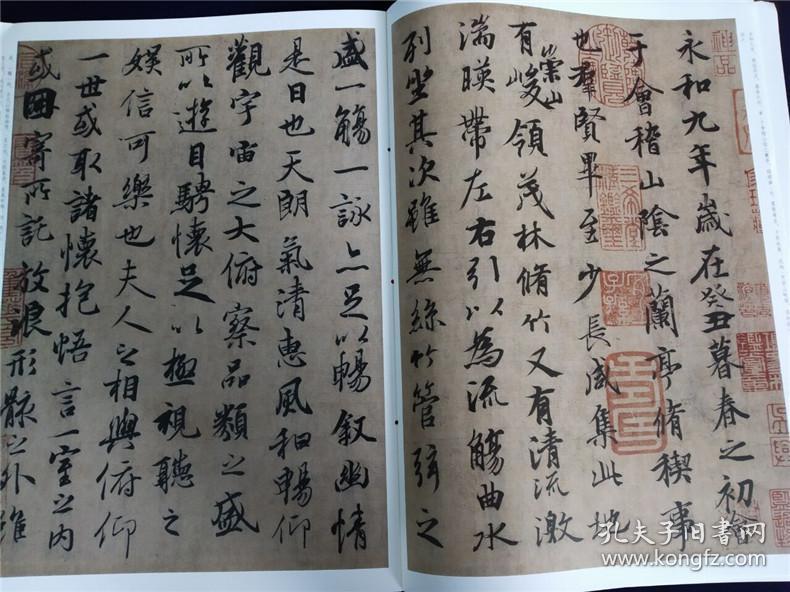 永和九年歲在癸丑暮春之初會
于會稽山陰之蘭亭脩稧事
也羣賢畢至少長咸集此地
有崇山峻領茂林脩竹又有清流激
湍暎帶左右引以為流觴曲水
列坐其次雖無絲竹管弦之
盛一觴一詠亦足以暢敘幽情
是日也天朗氣清惠風和暢仰
觀宇宙之大俯察品類之盛
所以遊目騁懷足以極視聽之
娛信可樂也夫人之相與俯仰
一世或取諸懷抱悟言一室之內
或因寄所託放浪形骸之外雖
孔夫子旧书网
www.kongfz.com